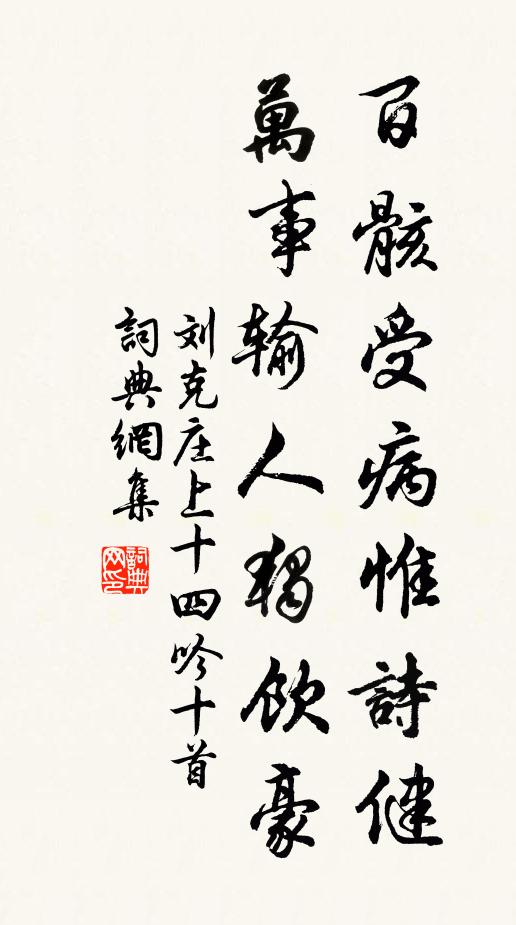 百骸受病惟詩健
萬事輸人獨飲豪
刘克庄上十四吟十首
詞典網集
詞典网印